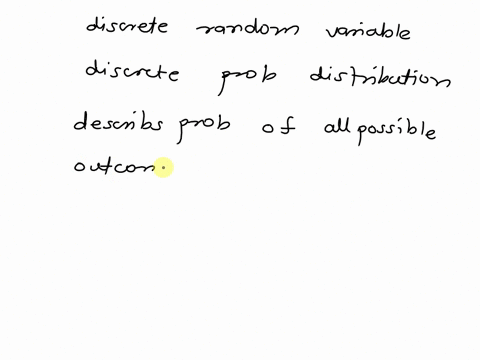 discrete random variable
discrete prob distribution
describs prob of all possible
outcom